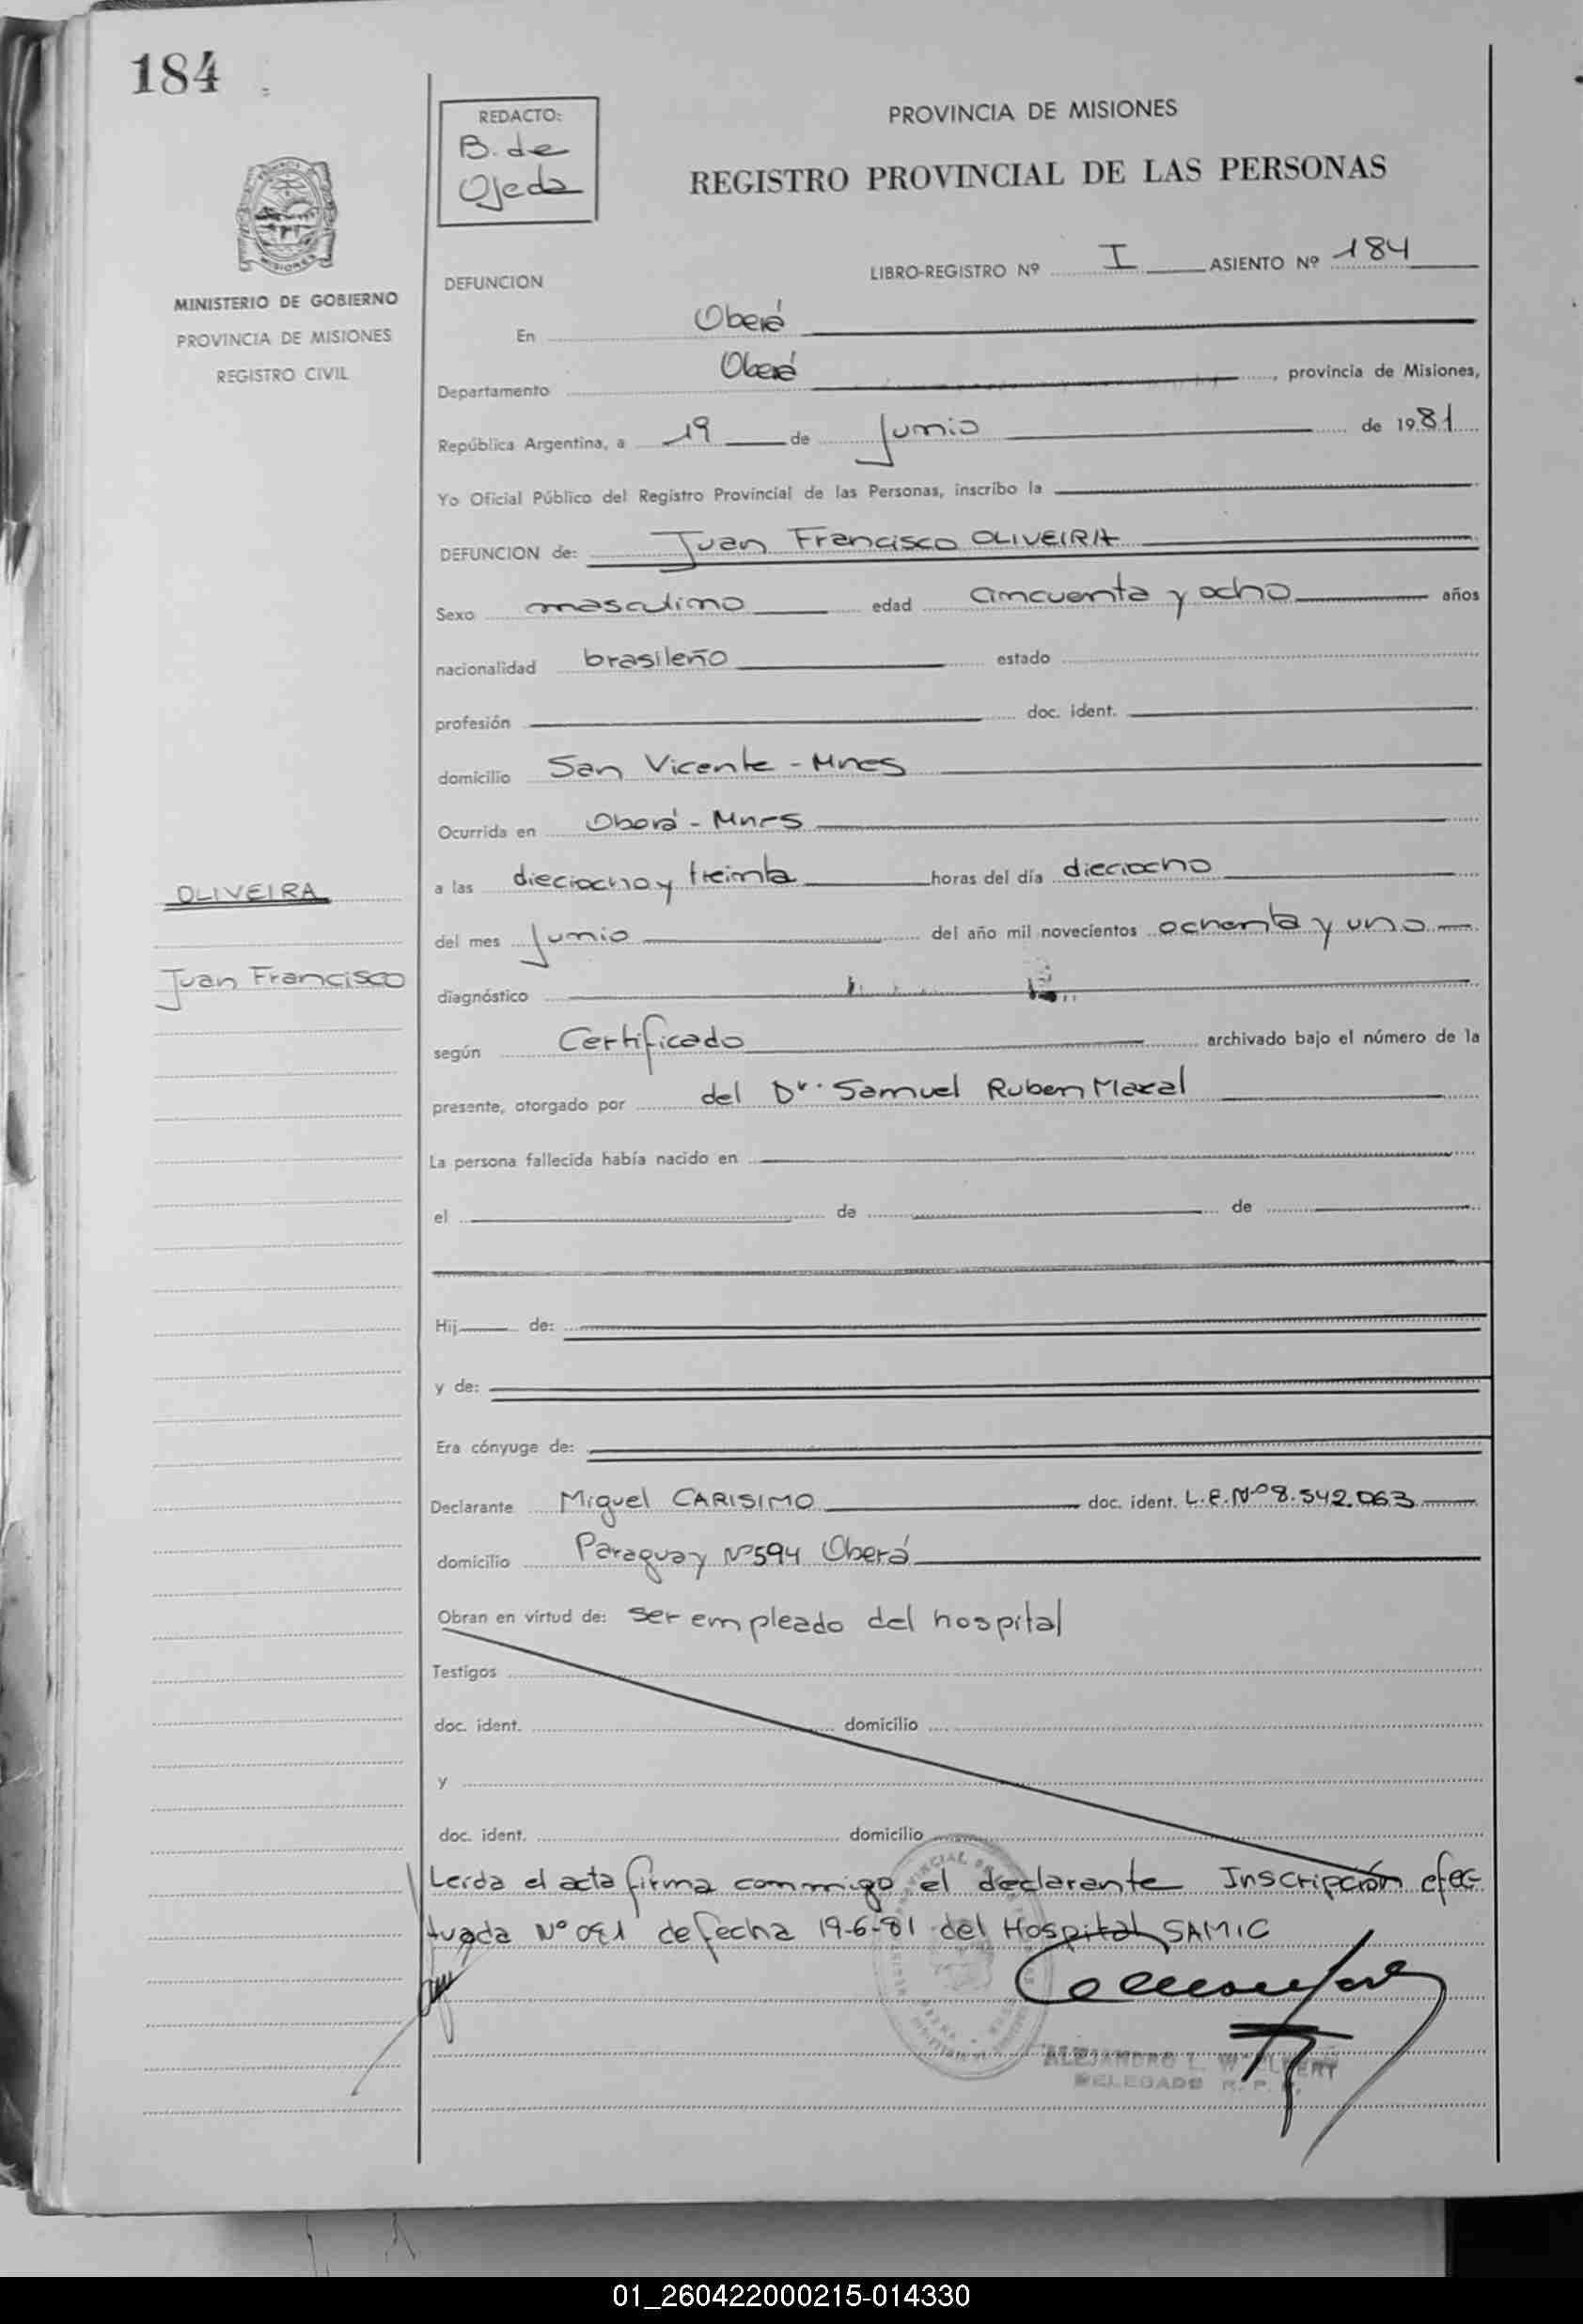 184
REDACTO:
B. de
Ojeda
PROVINCIA DE MISIONES
REGISTRO PROVINCIAL DE LAS PERSONAS
MISIONES
MINISTERIO DE GOBIERNO
PROVINCIA DE MISIONES
REGISTRO CIVIL
LIBRO-REGISTRO Nº I ASIENTO Nº 184
DEFUNCION
En Oberá
Departamento Oberá, provincia de Misiones,
República Argentina, a 19 de Junio de 1981
Yo Oficial Público del Registro Provincial de las Personas, inscribo la
DEFUNCION de: Juan Francisco OLIVEIRA
Sexo masculino edad cincuenta y ocho años
nacionalidad brasileño estado
profesión doc. ident.
domicilio San Vicente - Mnes
Ocurrida en Oberá - Mnes
OLIVEIRA
Juan Francisco
a las dieciocho y treinta horas del día dieciocho
del mes Junio del año mil novecientos ochenta y uno
diagnóstico
según Certificado archivado bajo el número de la
presente, otorgado por del Dr. Samuel Ruben
La persona fallecida había nacido en
el de de
Hij de:
y de:
Era cónyuge de:
Declarante Miguel CARISIMO doc. ident. L.E.Nº 8.542.063
domicilio Paraguay Nº594 Oberá
Obran en virtud de: ser empleado del hospital
Testigos
doc. ident. domicilio
y
doc. ident. domicilio
Leída el acta firma conmigo el declarante Inscripción efec-
tuada Nº de fecha 19-6-81 del Hospital SAMIC
ALEJANDRO L.
DELEGADO R. P. P.
01_260422000215-014330